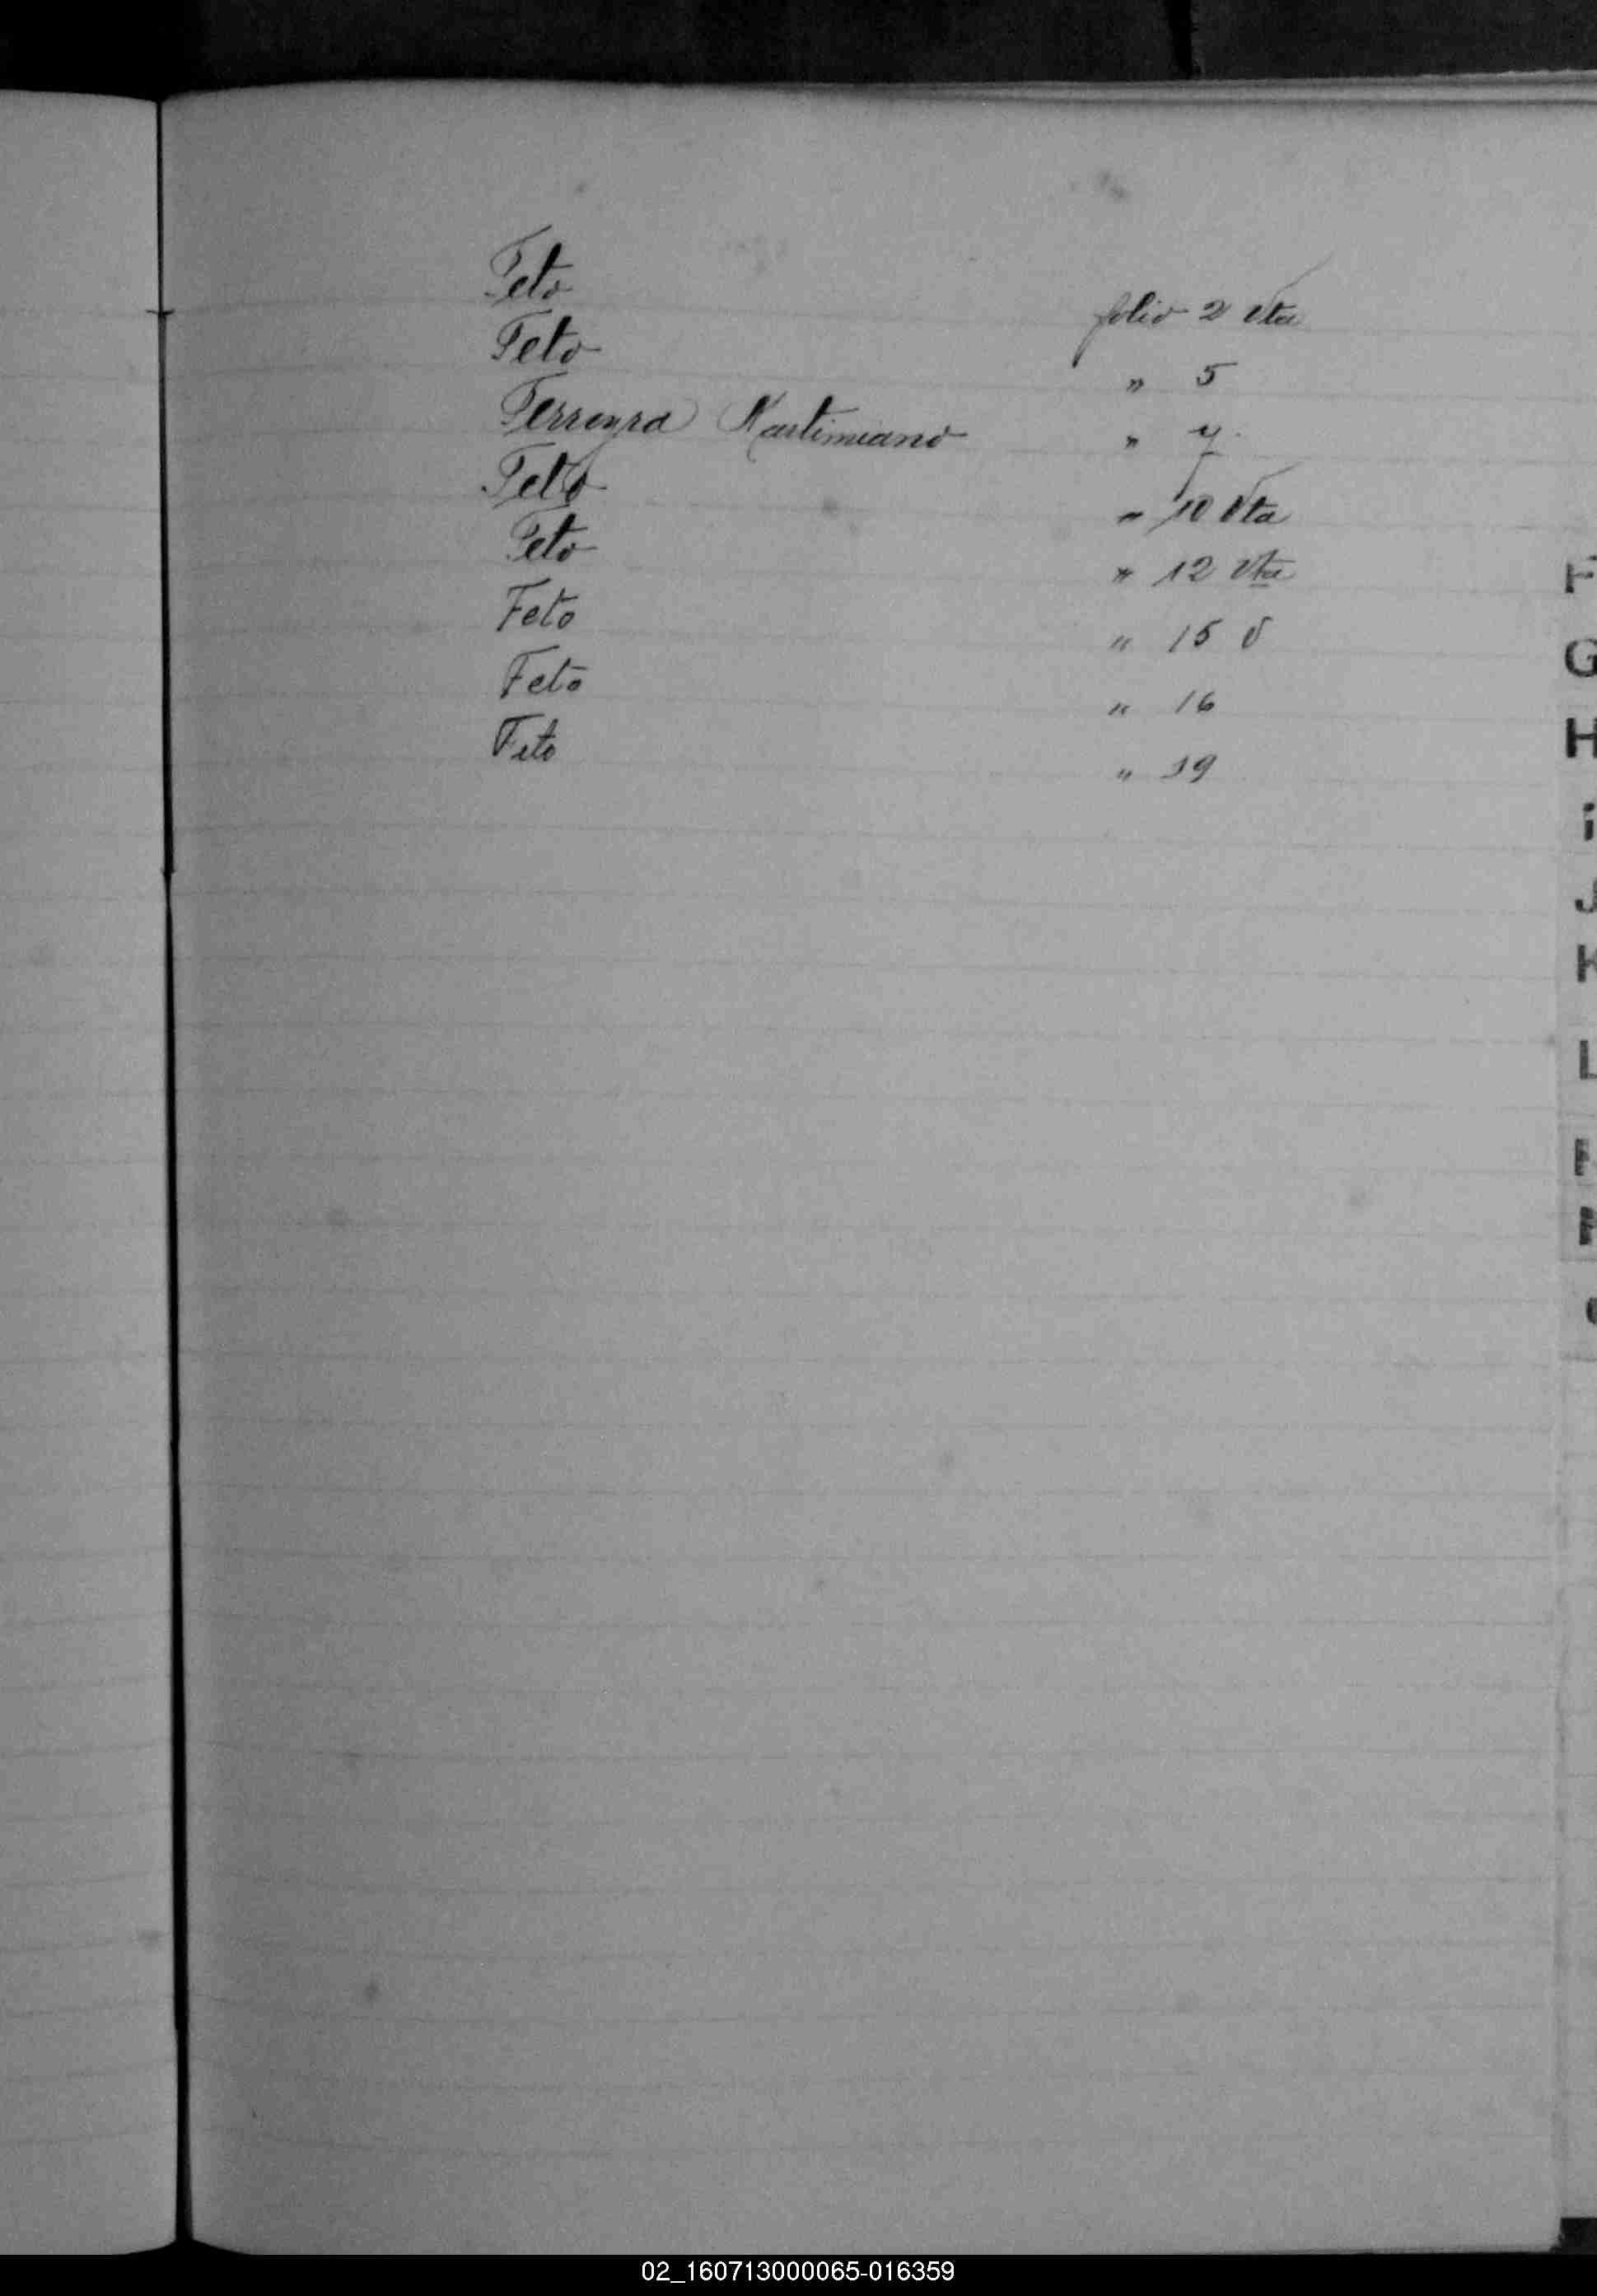 Feto folio 2 vta
Feto " 5
Ferreyra Martimiano " 7.
Feto " 10 vta
Feto " 12 vta
Feto " 15 v
Feto " 16
Feto " 19
F
G
H
i
J
K
L
02_160713000065-016359